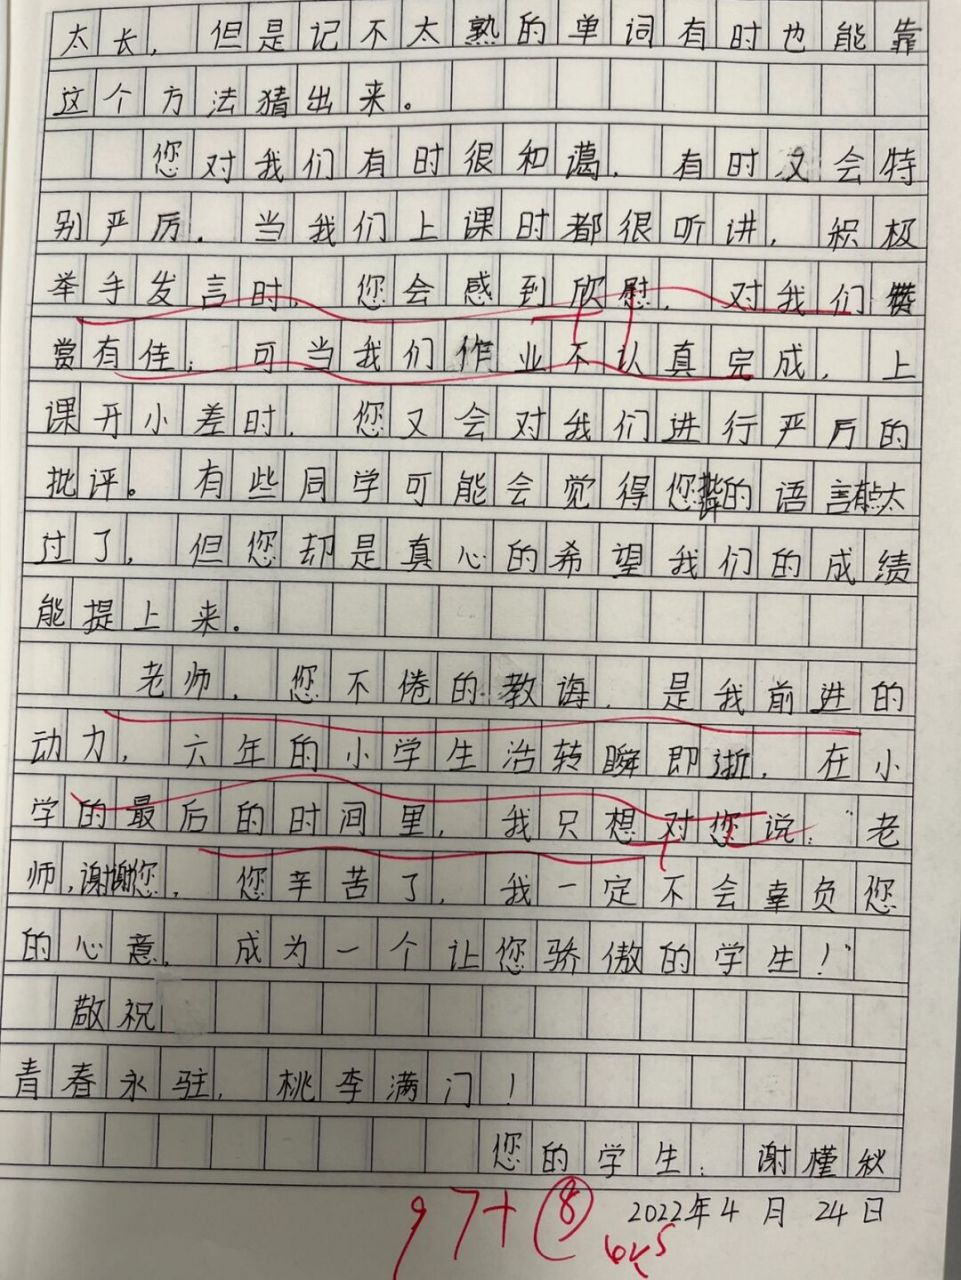 太长，但是记不太熟的单词有时也能靠
这个方法猜出来。
您对我们有时很和蔼，有时又会特
别严厉。当我们上课时都很听讲，积极
举手发言时，您会感到欣慰，对我们赞
赏有佳；可当我们作业不认真完成，上
课开小差时，您又会对我们进行严厉的
批评。有些同学可能会觉得您批评的语言有点太
过了，但您却是真心的希望我们的成绩
能提上来。
老师，您不倦的教诲，是我前进的
动力，六年的小学生活转瞬即逝，在小
学的最后的时间里，我只想对您说：“老
师，谢谢您，您辛苦了，我一定不会辜负您
的心意，成为一个让您骄傲的学生！”
敬祝
青春永驻，桃李满门！
您的学生：谢槿秋
2022年4月24日
97+⑧